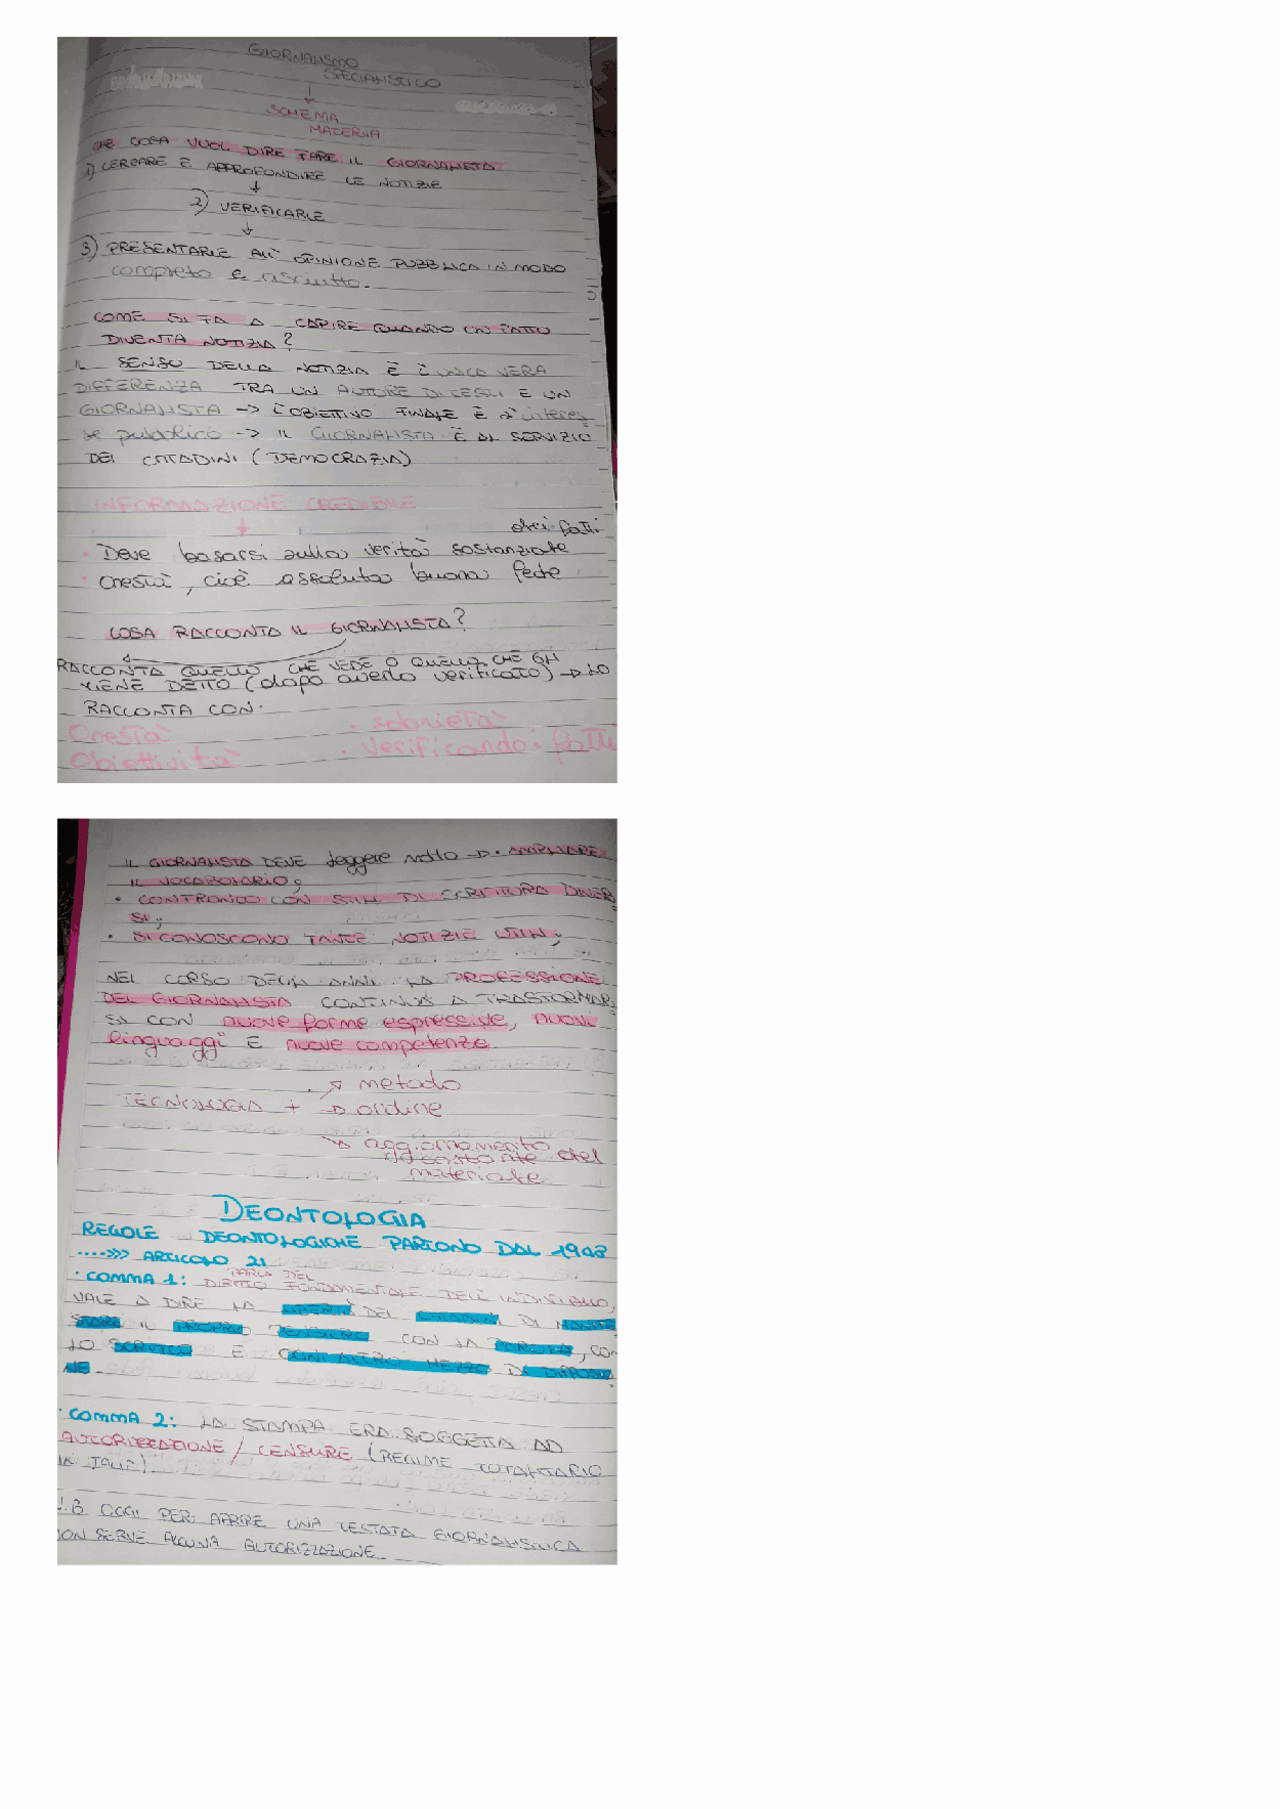 GIORNALISMO
SPECIALISTICO
↓
SCHEMA
MATERIA
CHE COSA VUOL DIRE FARE IL GIORNALISTA
1) CERCARE E APPROFONDIRE LE NOTIZIE
↓
2) VERIFICARLE
↓
3) PRESENTARLE ALL' OPINIONE PUBBLICA IN MODO
completo e asciutto.
COME SI FA A CAPIRE QUANDO UN FATTO
DIVENTA NOTIZIA?
IL SENSO DELLA NOTIZIA È L'UNICA VERA
DIFFERENZA TRA UN AUTORE DI TESTI E UN
GIORNALISTA -> L'OBIETTIVO FINALE È l'interes
se pubblico -> IL GIORNALISTA È AL SERVIZIO
DEI CITTADINI (DEMOCRAZIA)
INFORMAZIONE CREDIBILE
↓
dei fatti
• Deve basarsi sulla verità sostanziale
• Onestà, cioè assoluta buona fede
COSA RACCONTA IL GIORNALISTA?
RACCONTA QUELLO CHE VEDE O QUELLO CHE GLI
VIENE DETTO (dopo averlo verificato) -> LO
RACCONTA CON:
Onestà • sobrietà
Obiettività • Verificando i fatti
IL GIORNALISTA DEVE leggere molto -> • AMPLIARE
IL VOCABOLARIO;
• CONFRONTO CON STILI DI SCRITTURA DIVER
SI;
• SI CONOSCONO TANTE NOTIZIE UTILI;
NEL CORSO DEGLI ANNI LA PROFESSIONE
DEL GIORNALISTA CONTINUA A TRASFORMAR
SI CON nuove forme espressive, nuovi
linguaggi E nuove competenze.
-> metodo
TECNOLOGIA + -> ordine
-> aggiornamento
costante del
materiale
DEONTOLOGIA
REGOLE DEONTOLOGICHE PARTONO DAL 1948
....>>> ARTICOLO 21
PARLA DEL
• COMMA 1: DIRITTO FONDAMENTALE DELL'INDIVIDUO,
VALE A DIRE LA LIBERTÀ DEL CITTADINO DI MANIFE
STARE IL PROPRIO PENSIERO CON LA PAROLA, CON
LO SCRITTO E OGNI ALTRO MEZZO DI DIFFUSIO
NE.
• COMMA 2: LA STAMPA ERA SOGGETTA AD
AUTORIZZAZIONE / CENSURE (REGIME TOTALITARIO
N.B. OGGI PER APRIRE UNA TESTATA GIORNALISTICA
NON SERVE ALCUNA AUTORIZZAZIONE.